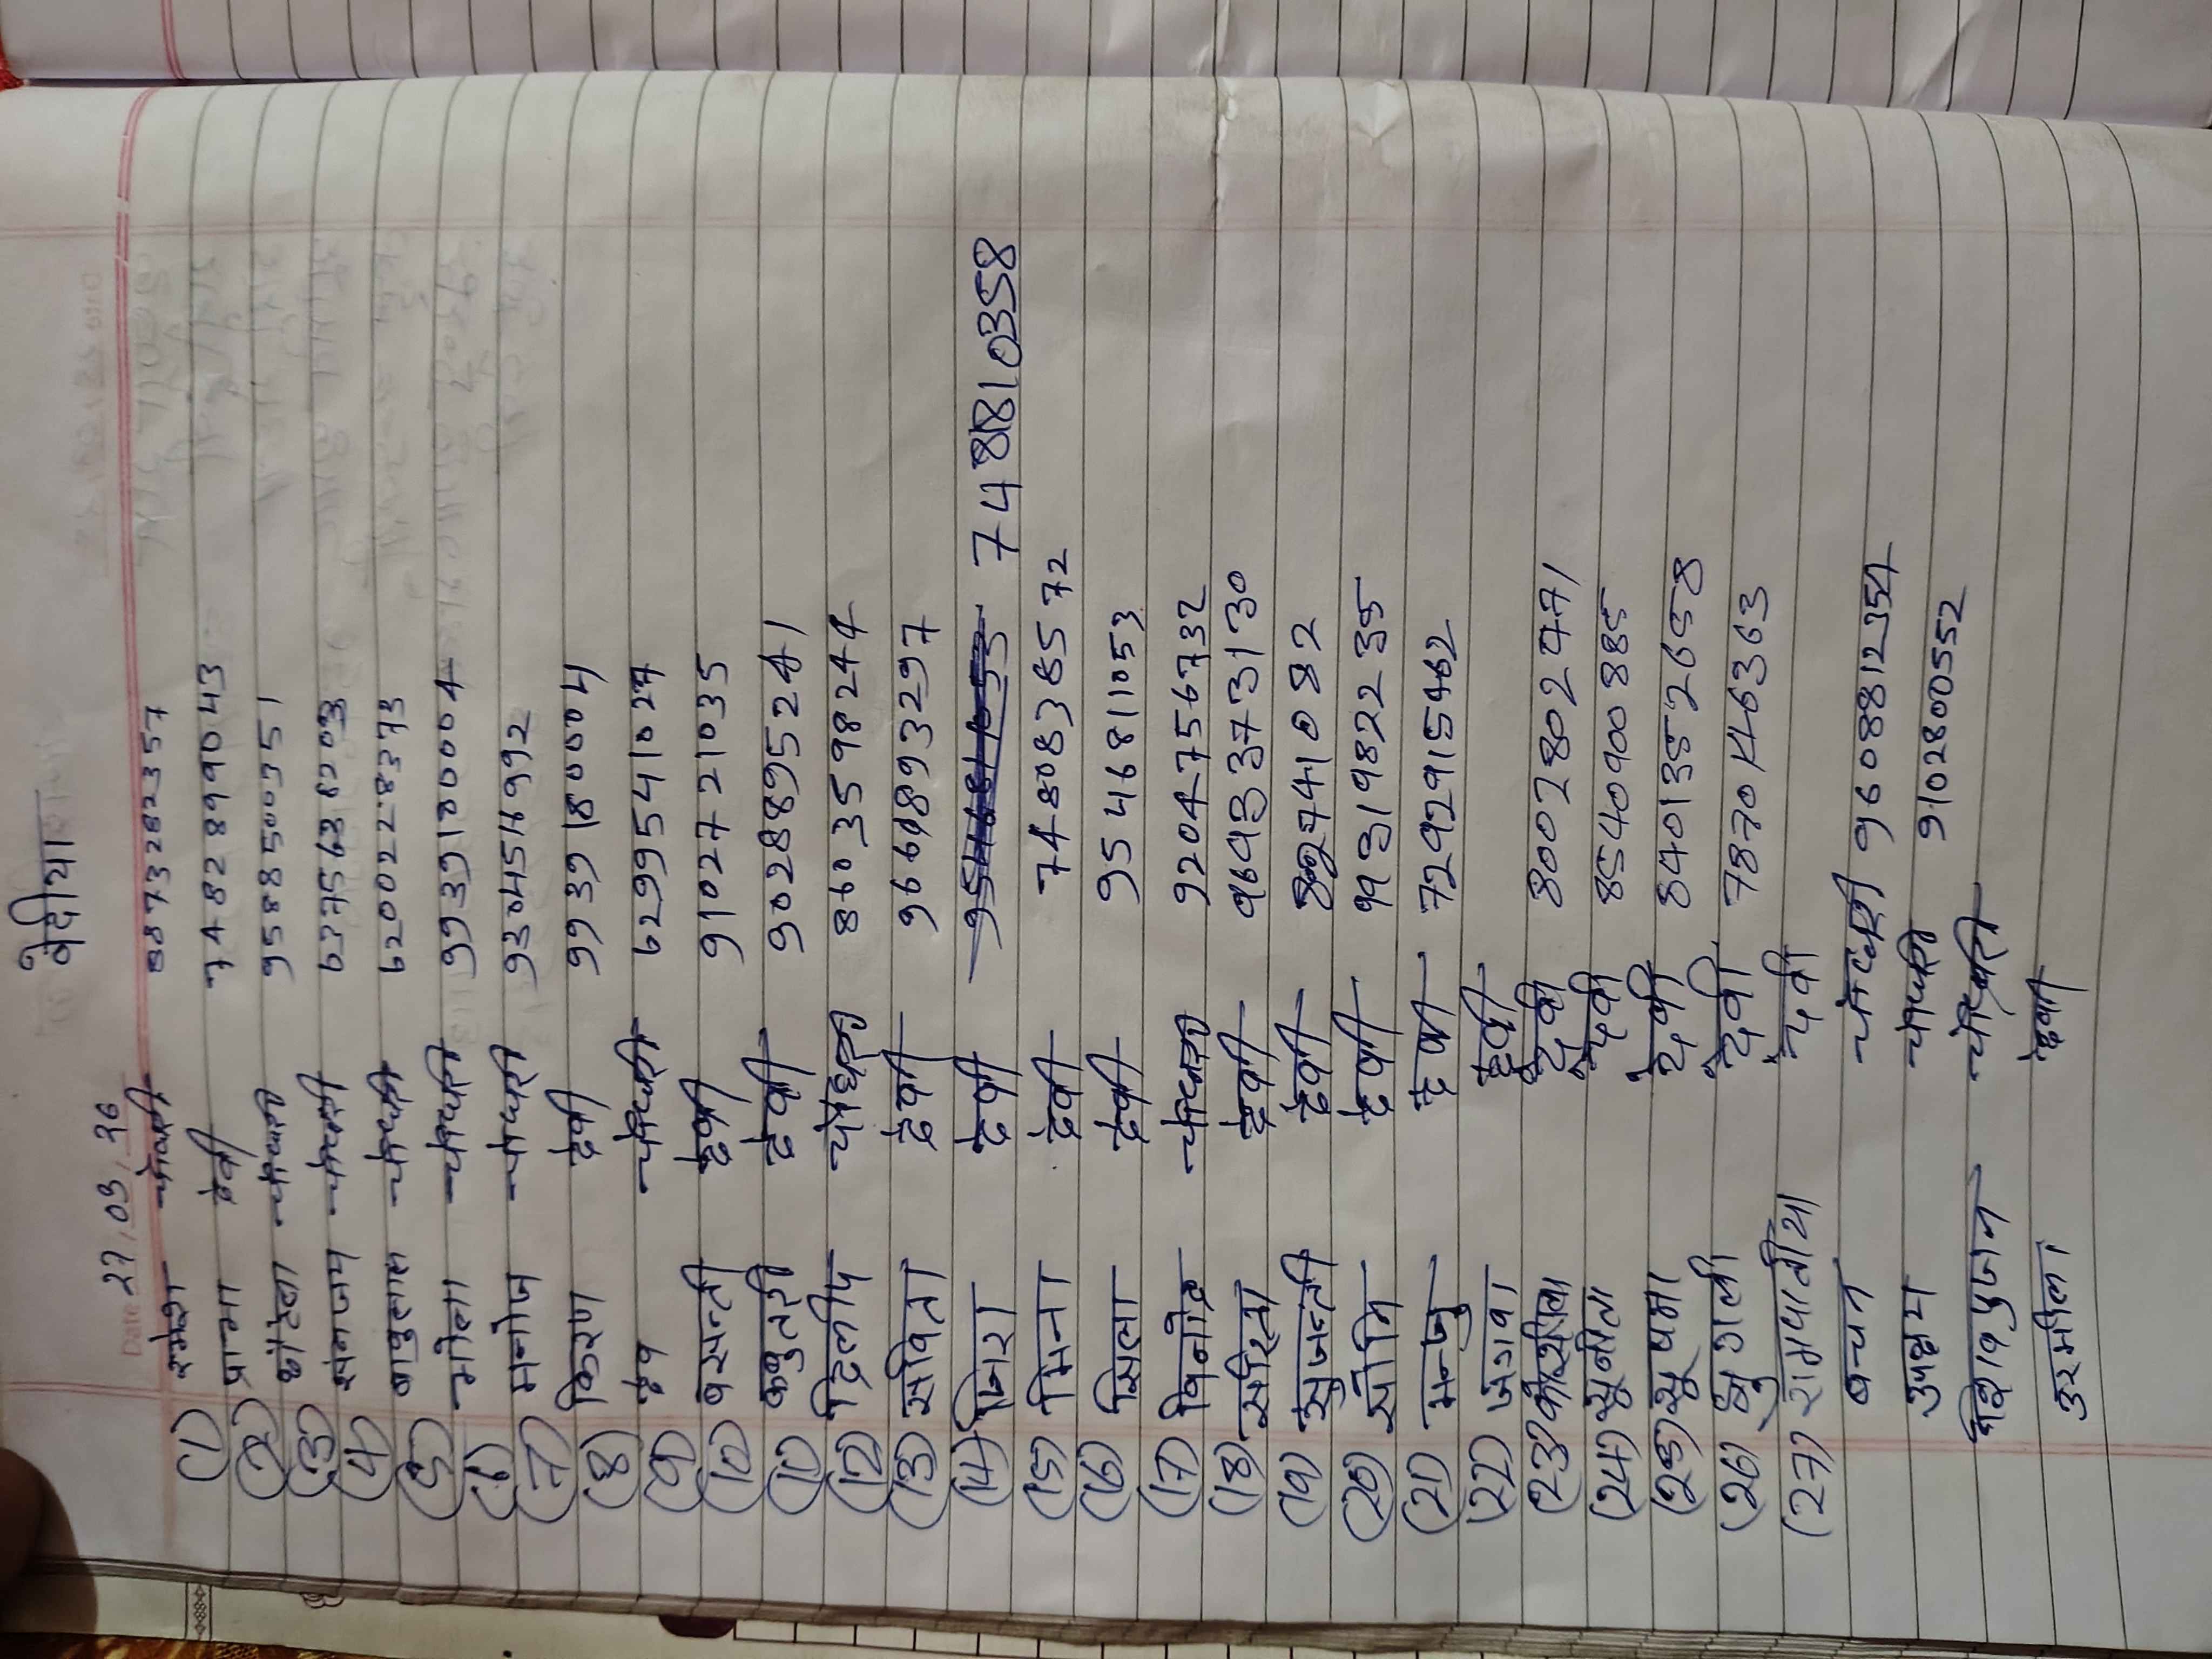 बेदीया
Date 27.03.26
(1) रमेश चौधरी 8873282357
(2) देवी 7482899043
(3) चौधरी 9588500351
(4) संनजय चौधरी 6277563820
(5) चौधरी 6200228373
(6) चौधरी 9939180004
(7) मनोज चौधरी 9304514992
(8) किरण देवी 9939180004
(9) चौधरी 6299541027
(10) बसन्ती देवी 9102721035
(11) देवी 9028895241
(12) दिलीप चौधरी 8603598244
(13) सविता देवी 9669893297
(14) जिरा देवी 7488810358
(15) मिना देवी 7480838572
(16) सिला देवी 9546811053
(17) विनोद चौधरी 9204756732
(18) सरिता देवी 9693373130
(19) सुजन्ती देवी 82741082
(20) सोमि देवी 9931982235
(21) मन्जु देवी 7292915462
(22) जगवा देवी
(23) कौशीला देवी 8002802471
(24) सुनीता देवी 8540900885
(25) सुषमा देवी 8401352658
(26) देवी 7870146363
(27) देवी
बचन चौधरी 9608812354
चौधरी 9102800552
चौधरी
उरमीला देवी